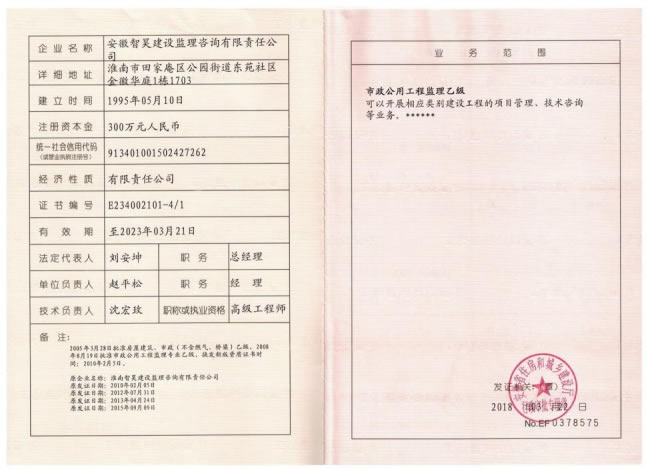 企业名称 安徽智昊建设监理咨询有限责任公
司
详细地址 淮南市田家庵区公园街道东苑社区
金徽华庭1栋1703
建立时间 1995年05月10日
注册资本金 300万元人民币
统一社会信用代码
(或营业执照注册号) 913401001502427262
经济性质 有限责任公司
证书编号 E234002101-4/1
有效期 至2023年03月21日
法定代表人 刘安坤 职务 总经理
单位负责人 赵平松 职务 经理
技术负责人 沈宏玫 职称或执业资格 高级工程师
备注:
2005年3月28日批准房屋建筑、市政(不含燃气、桥梁)乙级。2008
年8月19日核准市政公用工程监理专业乙级。换发新版资质证书时
间:2010年2月5日。
原企业名称:淮南智昊建设监理咨询有限责任公司
原发证日期:2010年02月05日
原发证日期:2012年07月31日
原发证日期:2013年04月24日
原发证日期:2015年09月09日
业务范围
市政公用工程监理乙级
可以开展相应类别建设工程的项目管理、技术咨询
等业务。******
安徽省住房和城乡建设厅
发证机关:(章)
2018年03月22日
No.EF 0378575